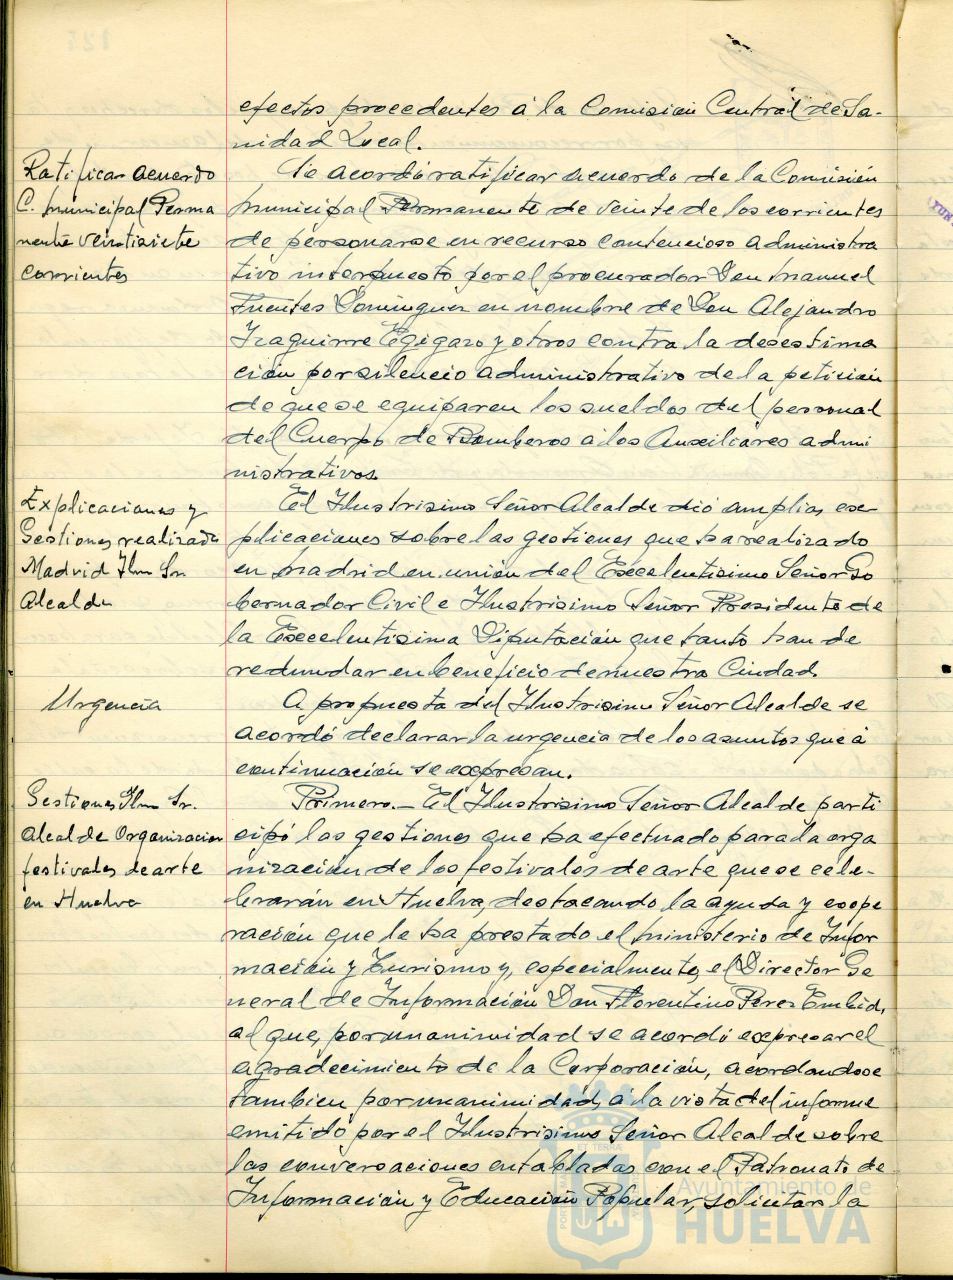 efectos procedentes á la Comisión Central de Sa-
nidad Local.
Ratificar acuerdo
C. municipal Perma
nente veintisiete
corrientes
Se acordó ratificar acuerdo de la Comisión
municipal Permanente de veinte de los corrientes
de personarse en recurso contencioso administra
tivo interpuesto por el procurador Don Manuel
Fuentes Dominguez en nombre de Don Alejandro
Izaguirre Egigaro y otros contra la desestima
ción por silencio administrativo de la petición
de que se equiparen los sueldos del personal
del Cuerpo de Bomberos á los Auxiliares admi
nistrativos
Explicaciones y
Gestiones realizada
Madrid Ilm Sr.
Alcalde
El Ilustrisimo Señor Alcalde dió amplias ex-
plicaciones sobre las gestiones que ha realizado
en Madrid en unión del Excelentisimo Señor Go
bernador Civil e Ilustrisimo Señor Presidente de
la Excelentisima Diputación que tanto han de
redundar en beneficio de nuestra Ciudad.
Urgencia
A propuesta del Ilustrisimo Señor Alcalde se
acordó declarar la urgencia de los asuntos que á
continuación se expresan.
Gestiones Ilm Sr.
Alcalde Organizacion
festivales de arte
en Huelva
Primero.- El Ilustrisimo Señor Alcalde parti
cipó las gestiones que ha efectuado para la orga
nización de los festivales de arte que se cele-
brarán en Huelva, destacando la ayuda y coope
ración que le ha prestado el ministerio de Infor
mación y Turismo y, especialmente, el Director Ge
neral de Información Don Florentino Perez Embid,
al que, por unanimidad se acordó expresar el
agradecimiento de la Corporación, acordandose
tambien por unanimidad, á la vista del informe
emitido por el Ilustrisimo Señor Alcalde sobre
las conversaciones entabladas con el Patronato de
Información y Educación Popular, solicitar la
Ayuntamiento de
HUELVA